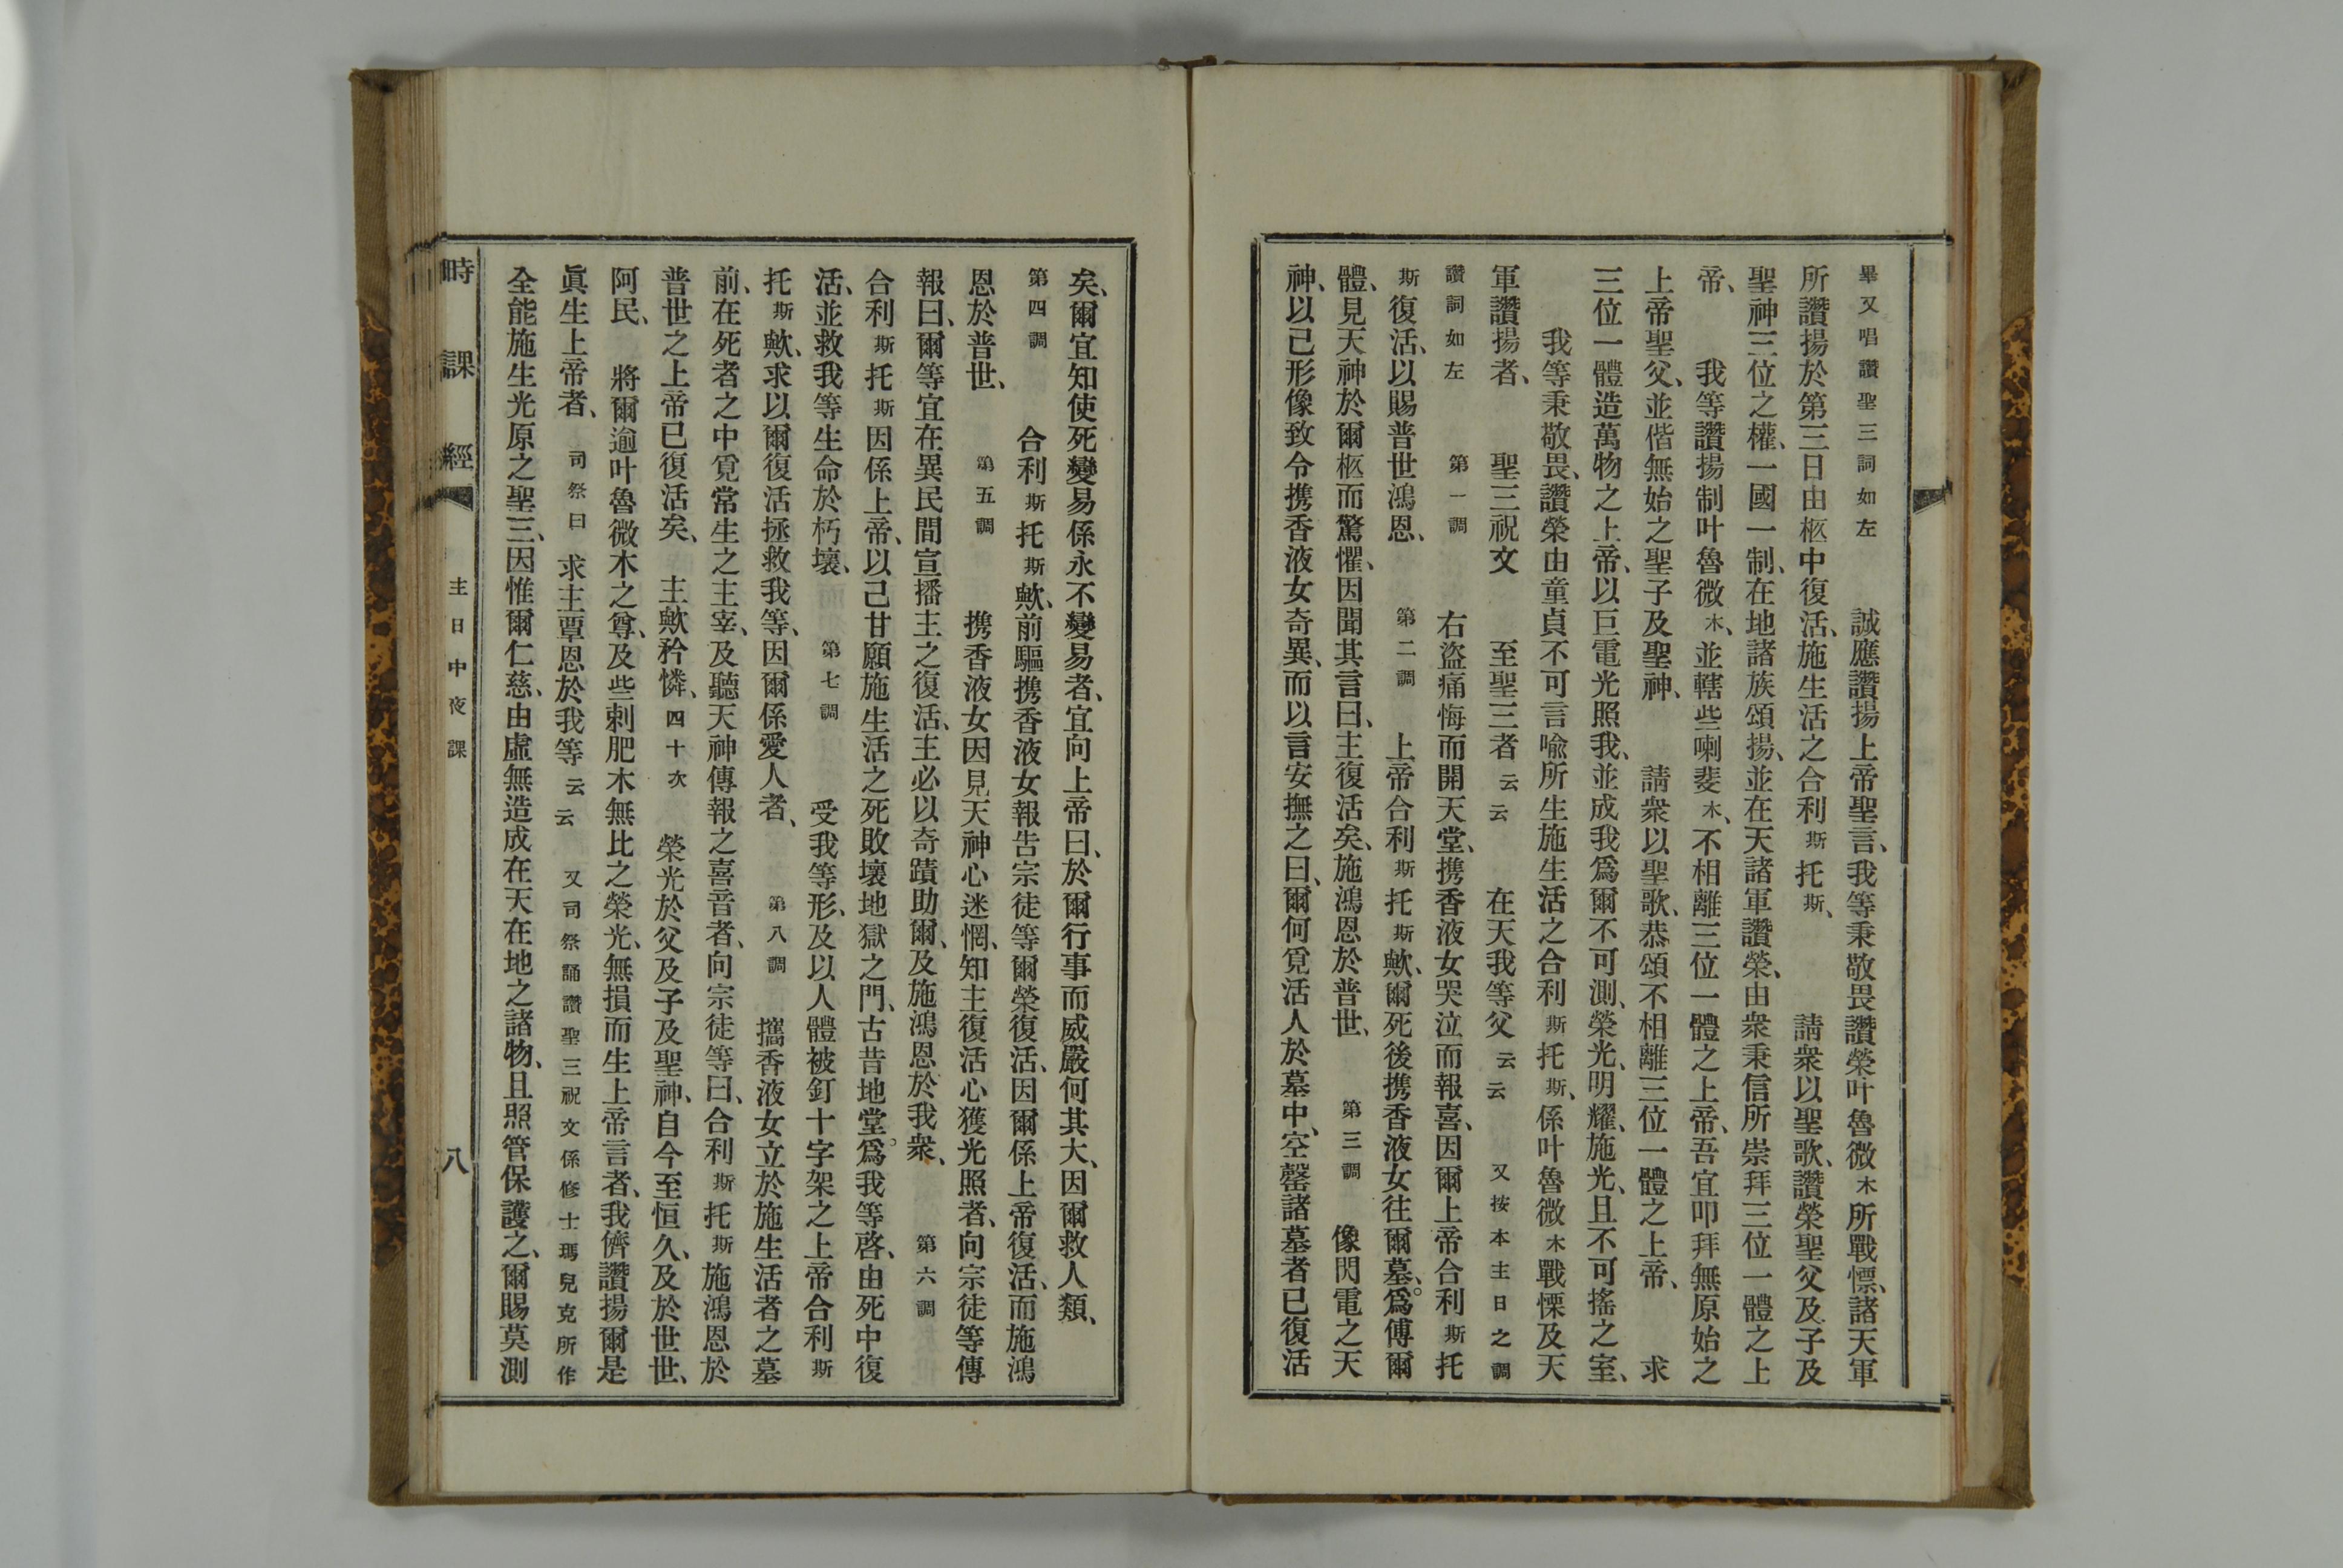 畢又唱讚聖三詞如左　誠應讚揚上帝聖言、我等秉敬畏讚榮叶魯微木所戰慄、諸天軍
所讚揚於第三日由柩中復活、施生活之合利斯托斯、　請衆以聖歌、讚榮聖父及子及
聖神三位之權、一國一制、在地諸族頌揚、並在天諸軍讚榮、由衆秉信所崇拜三位一體之上
帝、　我等讚揚制叶魯微木、並轄些喇斐木、不相離三位一體之上帝、吾宜叩拜無原始之
上帝聖父、並偕無始之聖子及聖神、　請衆以聖歌、恭頌不相離三位一體之上帝、　求
三位一體造萬物之上帝、以巨電光照我、並成我爲爾不可測、榮光、明耀、施光、且不可搖之室、
我等秉敬畏、讚榮由童貞不可言喻所生施生活之合利斯托斯、係叶魯微木戰慄及天
軍讚揚者、　聖三祝文　至聖三者云云　在天我等父云云　又按本主日之調
讚詞如左　第一調　右盜痛悔而開天堂、携香液女哭泣而報喜、因爾上帝合利斯托
斯復活、以賜普世鴻恩、　第二調　上帝合利斯托斯歟、爾死後携香液女往爾墓、爲傅爾
體、見天神於爾柩而驚懼、因聞其言曰、主復活矣、施鴻恩於普世、　第三調　像閃電之天
神、以己形像致令携香液女奇異、而以言安撫之曰、爾何覓活人於墓中、空罄諸墓者已復活
矣、爾宜知使死變易係永不變易者、宜向上帝曰、於爾行事而威嚴何其大、因爾救人類、
第四調　合利斯托斯歟、前驅携香液女報告宗徒等爾榮復活、因爾係上帝復活、而施鴻
恩於普世、　第五調　携香液女因見天神心迷惘、知主復活心獲光照者、向宗徒等傳
報曰、爾等宜在異民間宣播主之復活、主必以奇蹟助爾、及施鴻恩於我衆、　第六調
合利斯托斯因係上帝、以己甘願施生活之死敗壞地獄之門、古昔地堂。爲我等啓、由死中復
活、並救我等生命於朽壞、　第七調　受我等形、及以人體被釘十字架之上帝合利斯
托斯歟、求以爾復活拯救我等、因爾係愛人者、　第八調　攜香液女立於施生活者之墓
前、在死者之中覓常生之主宰、及聽天神傳報之喜音者、向宗徒等曰、合利斯托斯施鴻恩於
普世之上帝已復活矣、　主歟矜憐、四十次　榮光於父及子及聖神、自今至恒久、及於世世、
阿民、　將爾逾叶魯微木之尊、及些剌肥木無比之榮光、無損而生上帝言者、我儕讚揚爾是
眞生上帝者、　司祭曰　求主覃恩於我等云云　又司祭誦讚聖三祝文係修士瑪兒克所作
全能施生光原之聖三、因惟爾仁慈、由虛無造成在天在地之諸物、且照管保護之、爾賜莫測
時課經　主日中夜課　八